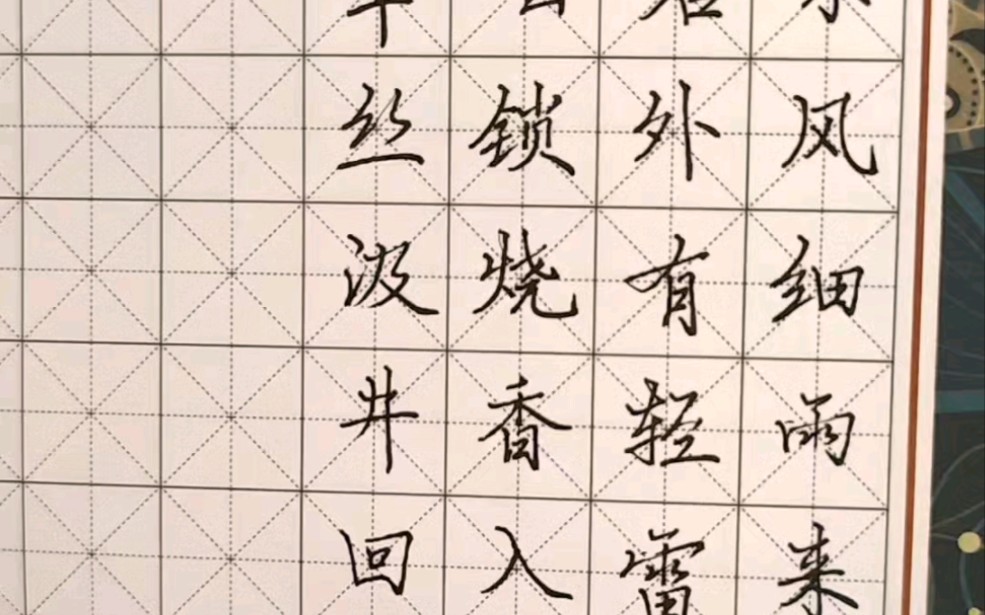 风细雨来
外有轻雷
锁烧香入
丝汲井回